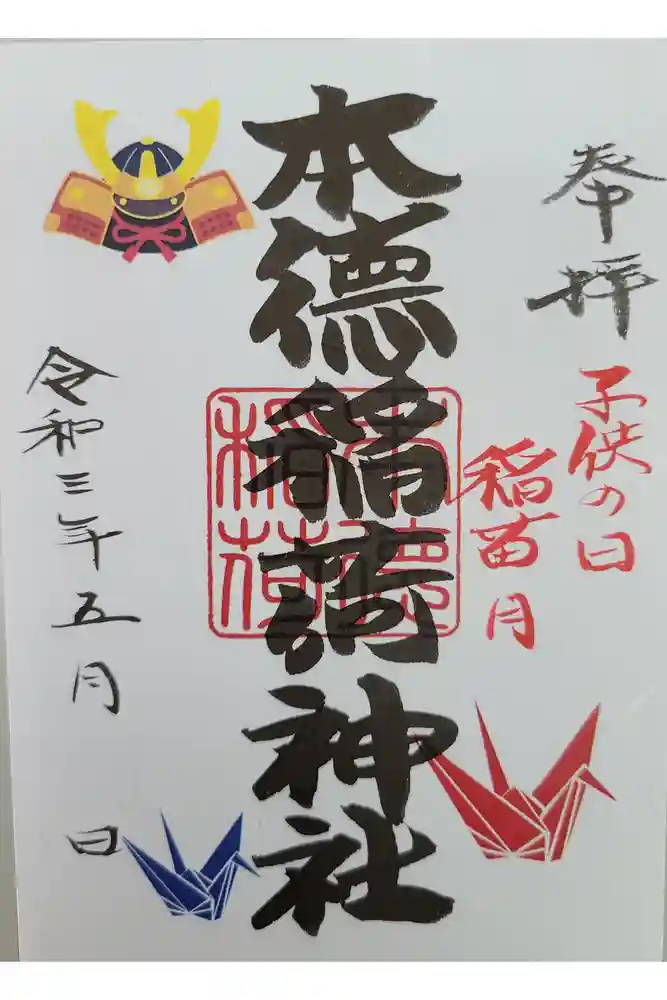 奉拝
子供の日
稲苗月
本徳稲荷神社
本徳
稲荷
令和三年五月
日